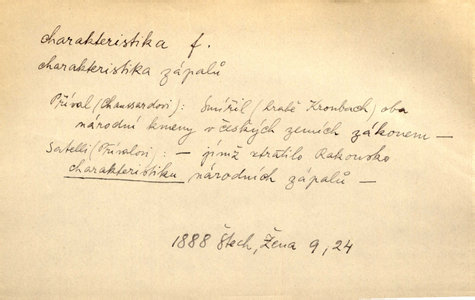 charakteristika f.
charakteristika zápalů
Příval (Chaussardovi): Smířil (hrabě Kronbach) oba
národní kmeny v českých zemích zákonem —
Sertelli (Přívalovi): — jímž ztratilo Rakousko
charakteristiku národních zápalů —
1888 Štech, Žena 9, 24